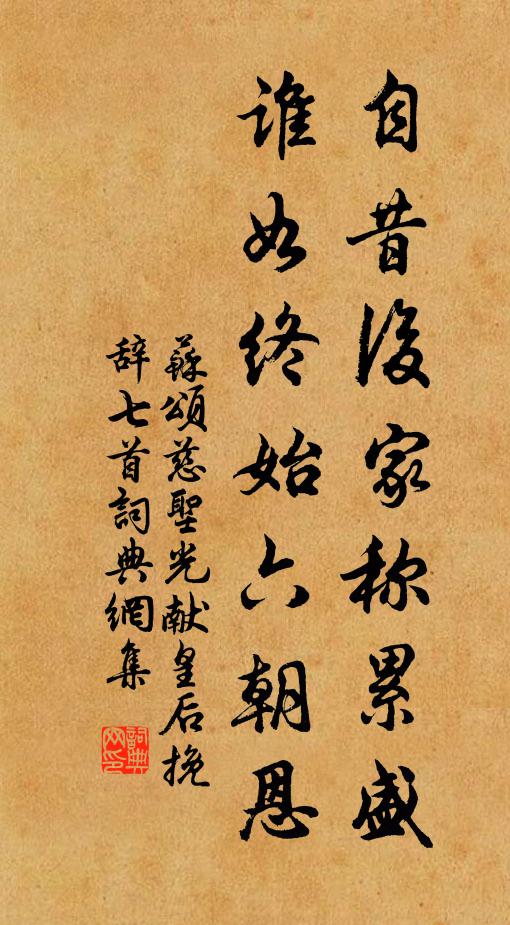 自昔後家称累盛
谁如终始六朝恩
蘇頌慈聖光献皇后挽
辞七首詞典網集
詞典网印